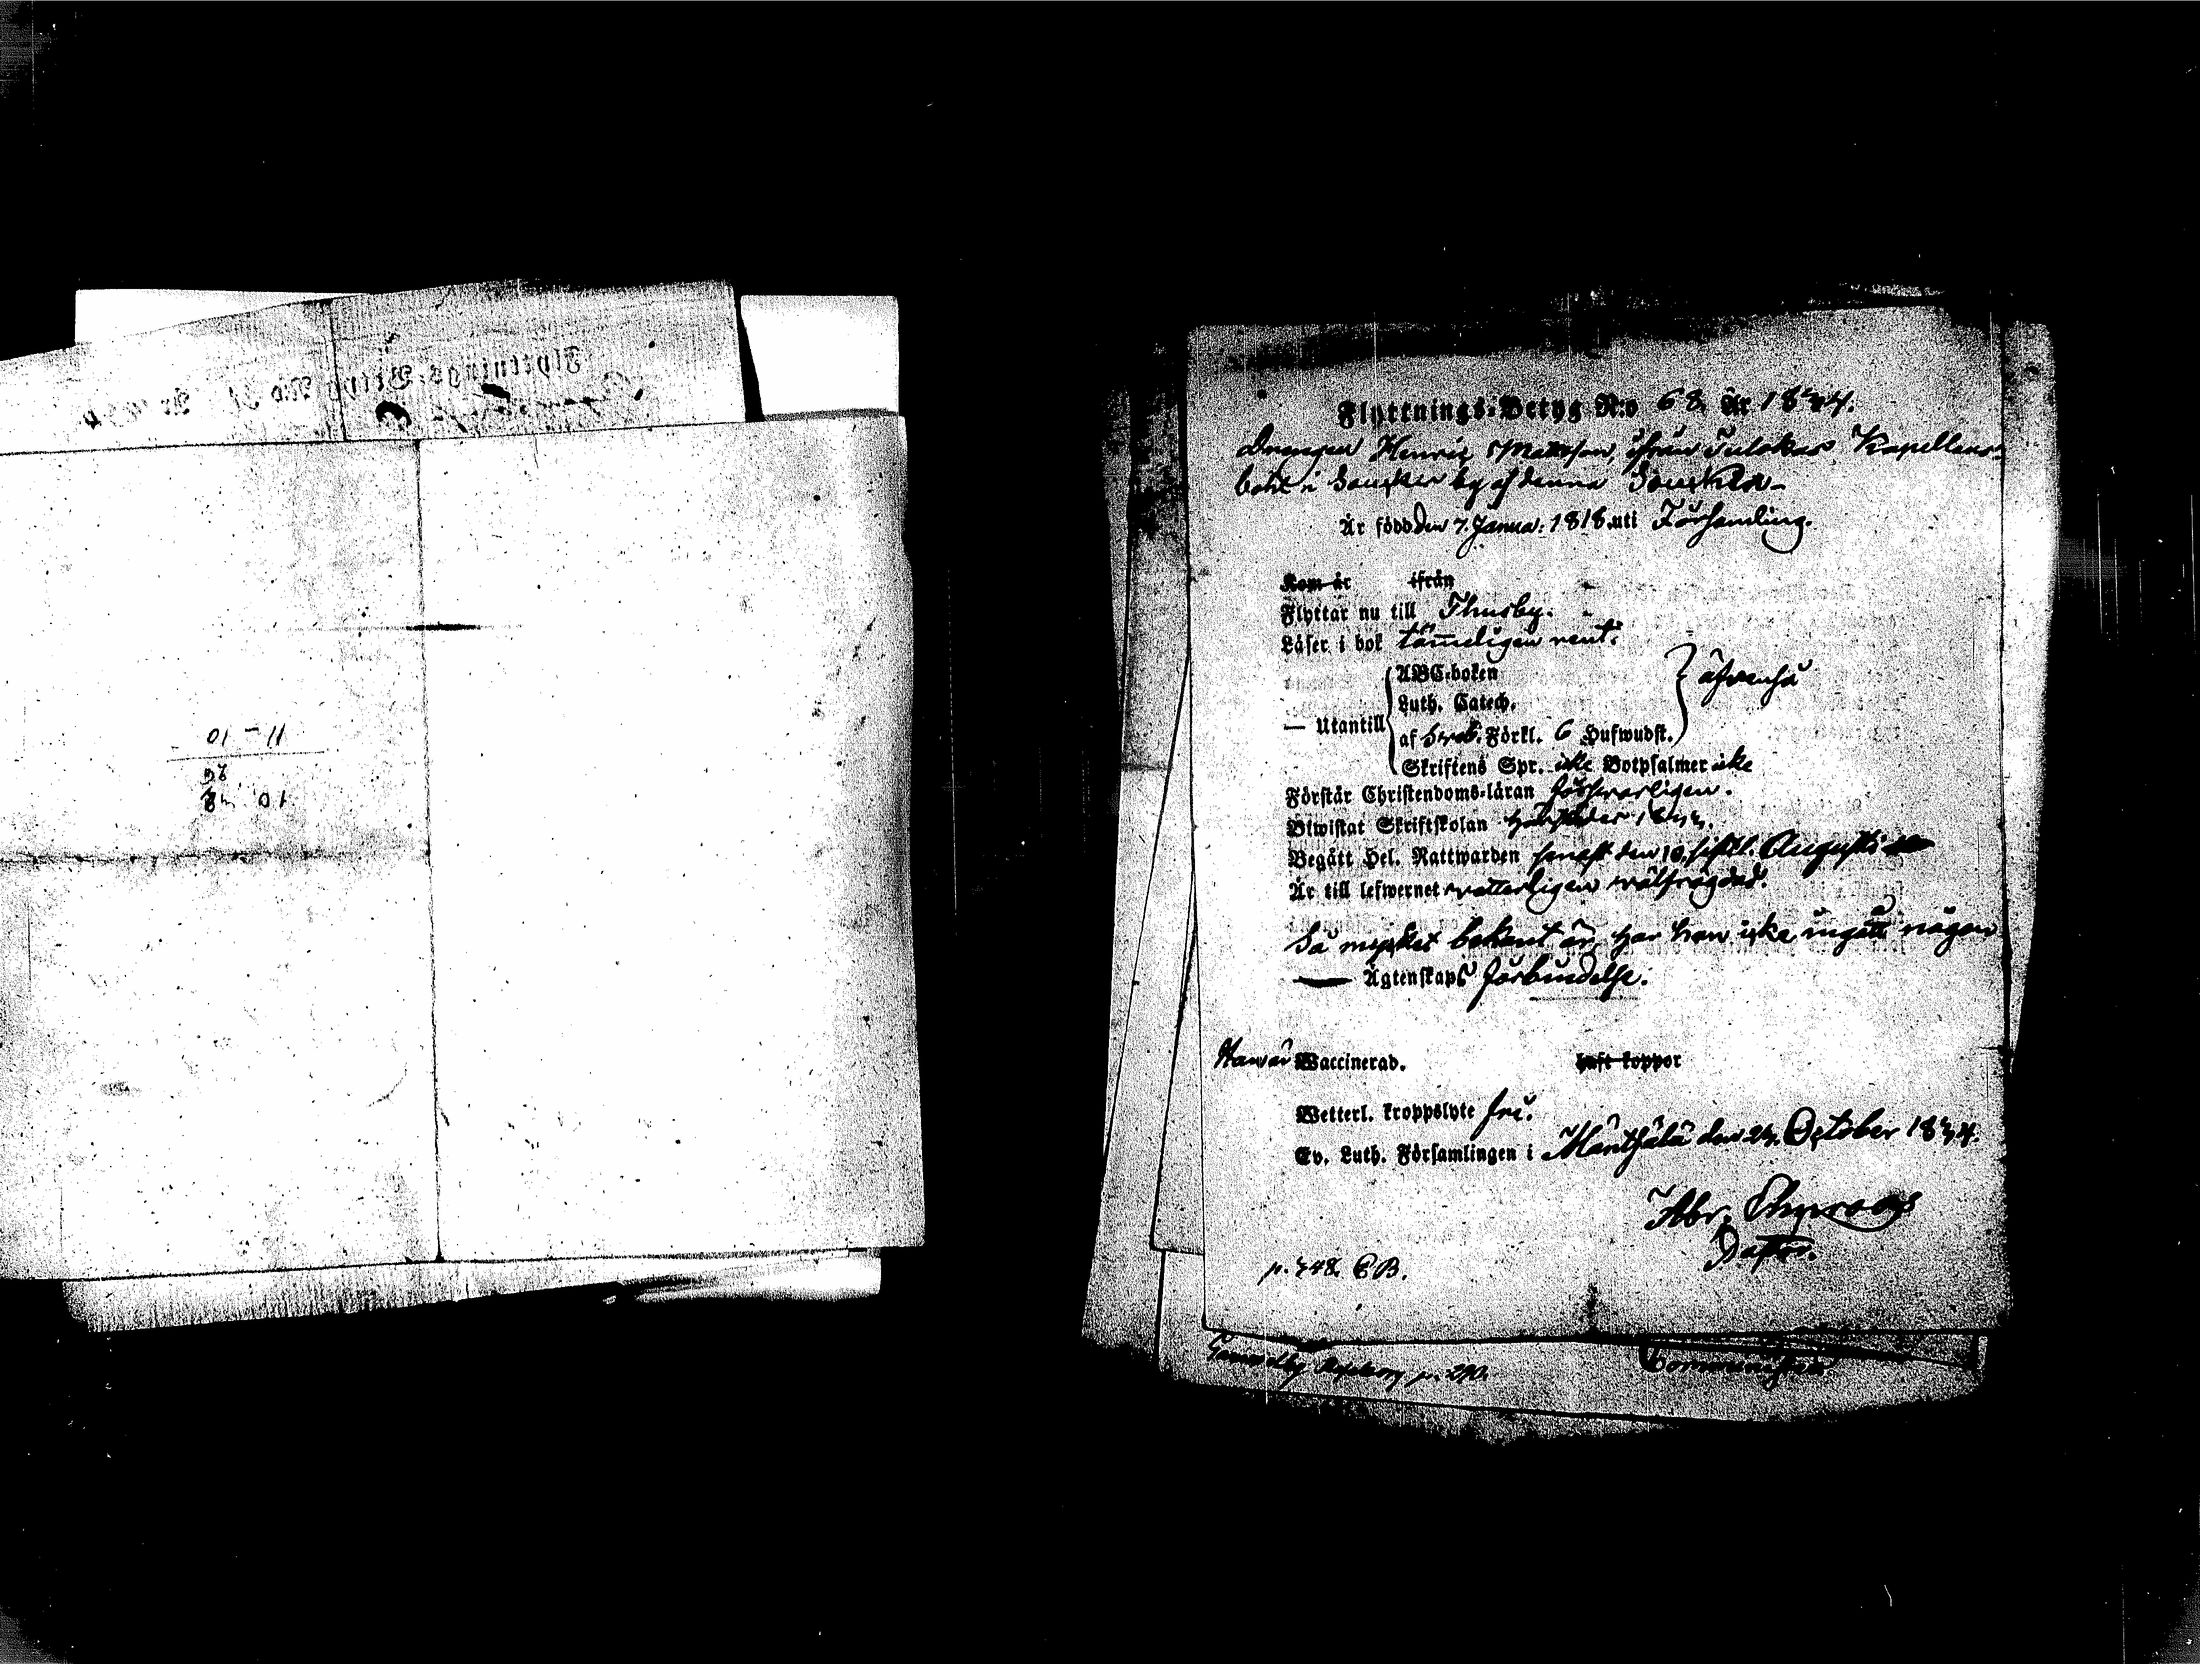 Flyttnings-Betyg N:o 68. År 1844.
Drengen Henric Mattsson, ifrån Tulokas Kapellans-
bohl i by af denna Socken
Är född den 7. Janua: 1818. uti Församling.
Kom år ifrån
Flyttar nu till Thusby.
Läser i bok tämeligen rent.
ABC-boken
Luth. Catech.
äfvenså
— Utantill
af Sveb. Förkl. 6 Hufwudst.
Skriftens Spr. icke Botpsalmer icke
Förstår Christendoms-läran försvarligen.
Biwistat Skriftskolan härstädes
Begått Hel. Nattwarden senast den 10. sistl. Augusti
Är till lefwernet wetterligen välfrägdad.
Så mycket bekant är, har han icke ingått någon
Ägtenskaps förbindelse.
Han är Waccinerad. haft koppor
Wetterl. kroppslyte fri.
Ev. Luth. Församlingen i Mäntsälä den October 1844.
Abr.
Pastor.
p. 448. CB.
p. 290.
11 - 10